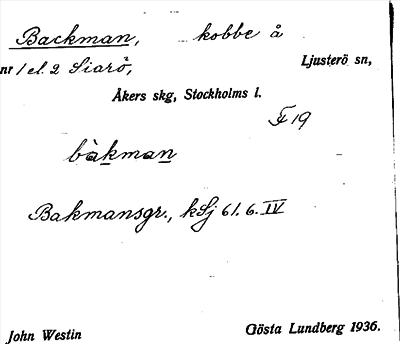 Backman, kobbe å
nr 1 el. 2 Siarö, Ljusterö sn,
Åkers skg, Stockholms l.
F 19
bàkman
Bakmansgr., kSj 61.6.IV
John Westin Gösta Lundberg 1936.